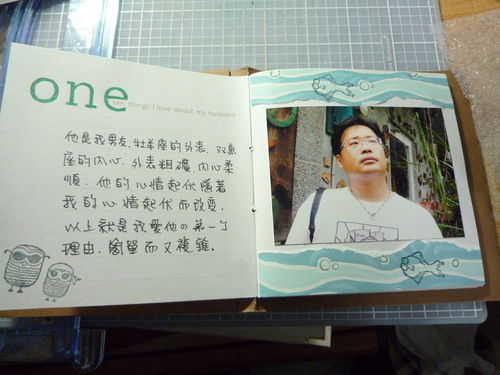 one
ten things I love about my husband
他是我男友，牡羊座的外表，双魚
座的內心，外表粗礦，內心柔
順，他的心情起伏隨著
我的心情起伏而改变，
以上就是我愛他の第一个
理由，簡單而又複雜。